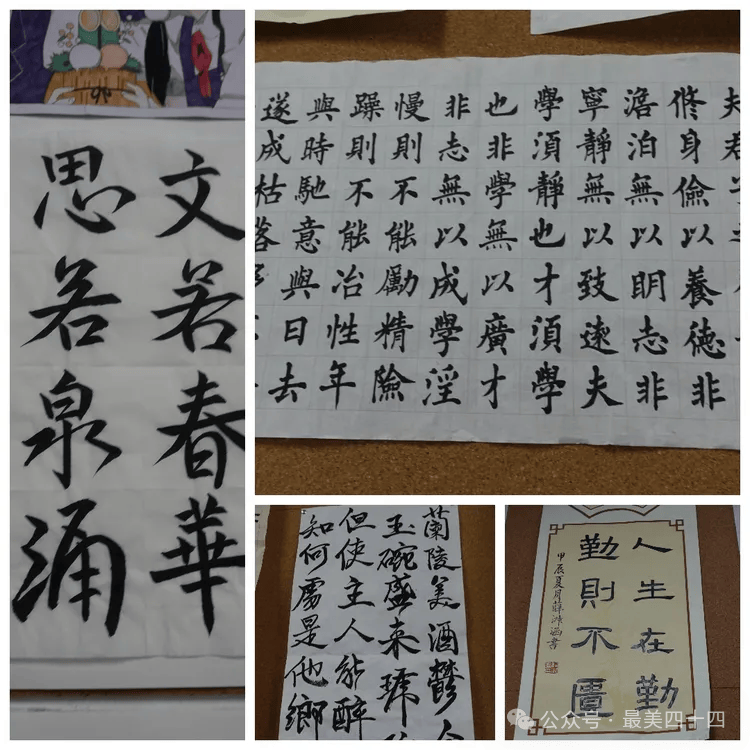 文若春華
思若泉涌
夫君子
修身儉以養德非
澹泊無以明志非
寧靜無以致遠夫
學須靜也才須學
也非學無以廣才
非志無以成學淫
慢則不能勵精險
躁則不能冶性年
與時馳意與日去
遂成枯落
蘭陵美酒鬱金
玉碗盛来琥
但使主人能醉
知何處是他鄉
人生在勤
勤則不匱
甲辰夏月薛沛涵書
公众号·最美四十四